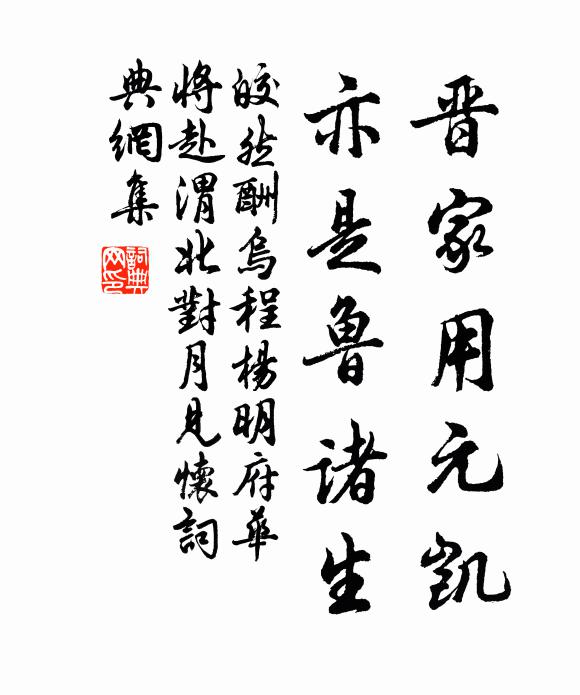 晋家用元凯
亦是魯诸生
皎然酬烏程楊明府華
將赴渭北對月見懷詞
典網集
詞典网印